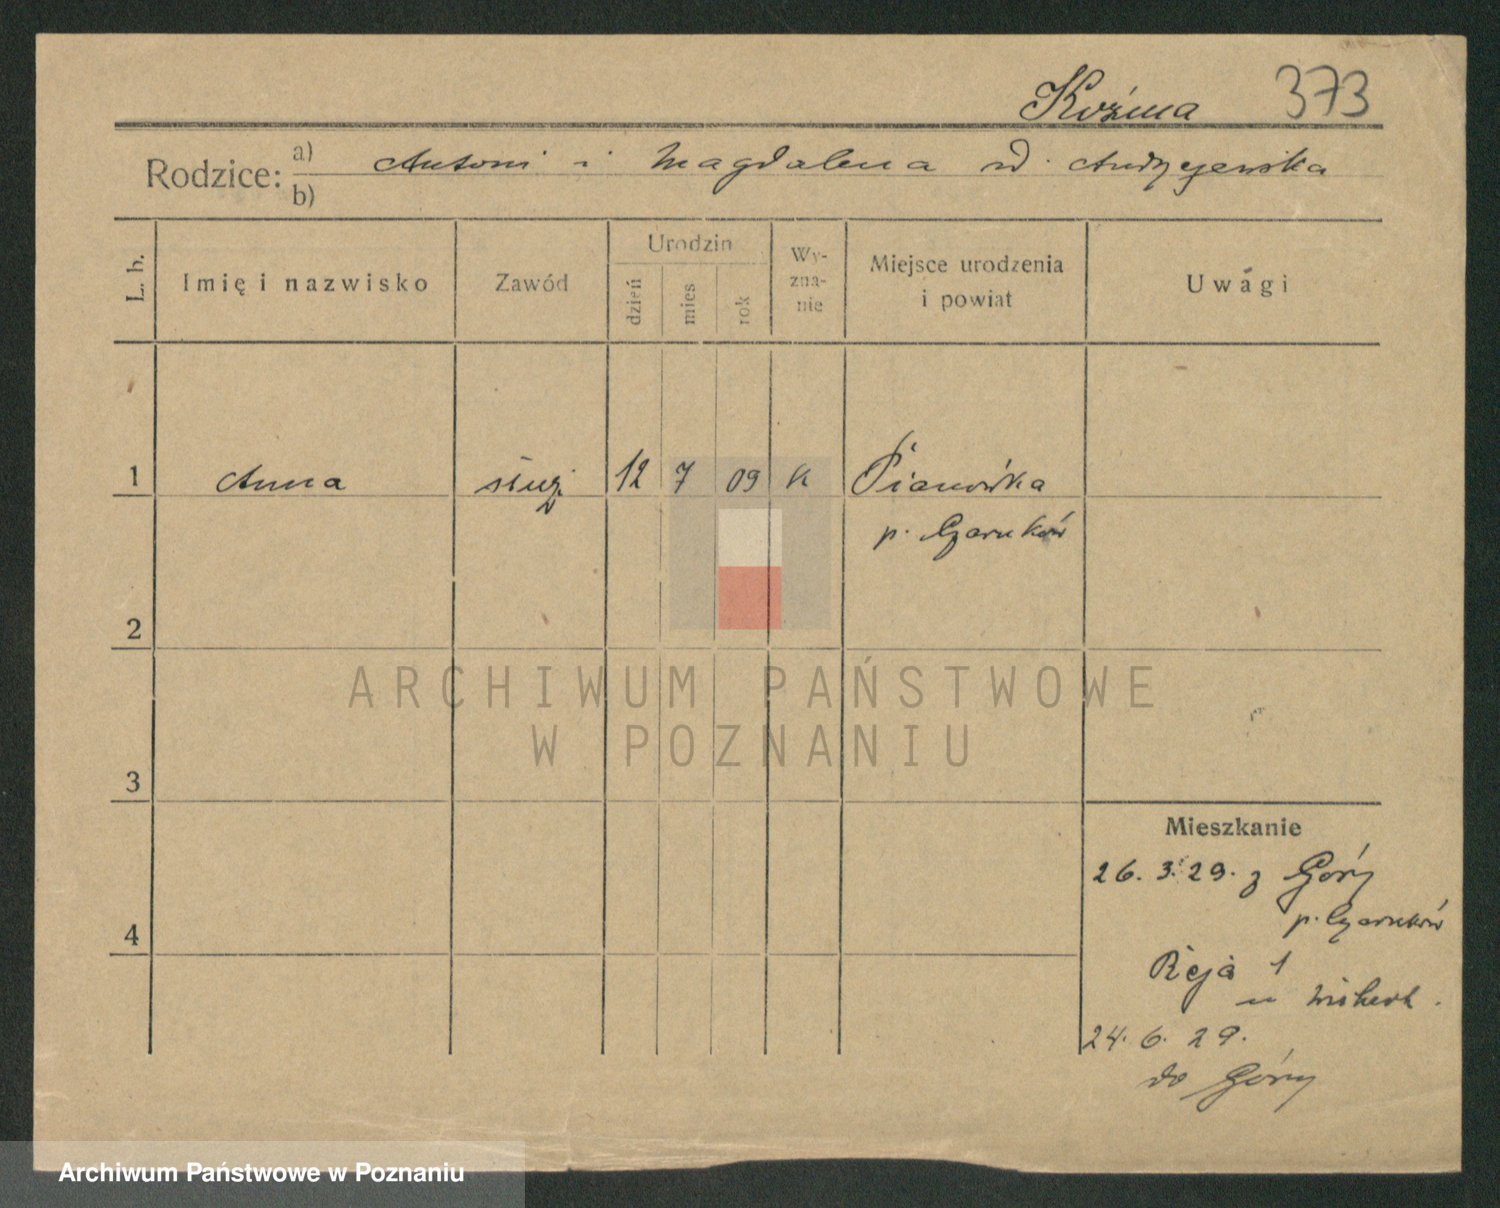 Koźma 373
Rodzice: a) Antoni i Magdalena zd. Andrzejewska
b)
L. b. Imię i nazwisko Zawód Urodzin dzień mies rok Wy-zna-nie Miejsce urodzenia i powiat Uwagi
1 Anna służ. 12 7 09 k Pianówka
p. Czarnków
2
ARCHIWUM PAŃSTWOWE
W POZNANIU
3
Mieszkanie
26. 3. 29. z Góry
p. Czarnków
4
Reja 1
u
24. 6. 29.
do Góry
Archiwum Państwowe w Poznaniu